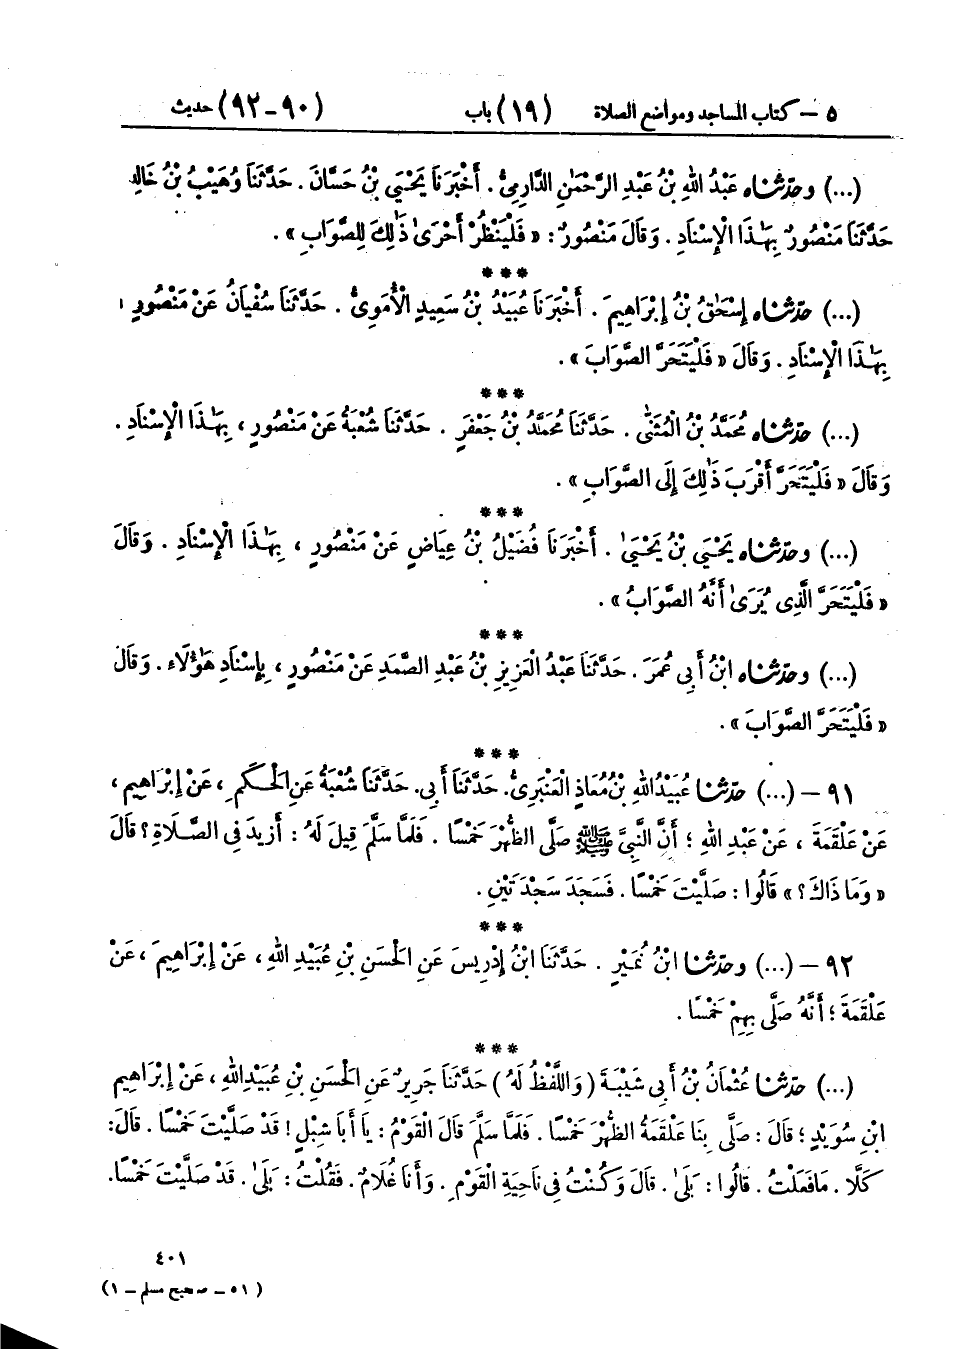 ٥ – كتاب المساجد ومواضع الصلاة (١٩) باب (٩٠-٩٢) حديث
(...) وحدّثناه عَبْدُ اللهِ بْنُ عَبْدِ الرَّحْمَٰنِ الدَّارِمِيُّ . أَخْبَرَنَا يَحْيَىٰ بْنُ حَسَّانَ . حَدَّثَنَا وُهَيْبُ بْنُ خَالِدٍ
حَدَّثَنَا مَنْصُورٌ بِهَٰذَا الْإِسْنَادِ . وَقَالَ مَنْصُورٌ : « فَلْيَنْظُرْ أَحْرَىٰ ذَٰلِكَ لِلصَّوَابِ » .
***
(...) حدّثناه إِسْحَٰقُ بْنُ إِبْرَاهِيمَ . أَخْبَرَنَا عُبَيْدُ بْنُ سَعِيدٍ الْأُمَوِيُّ . حَدَّثَنَا سُفْيَانُ عَنْ مَنْصُورٍ ،
بِهَٰذَا الْإِسْنَادِ . وَقَالَ « فَلْيَتَحَرَّ الصَّوَابَ » .
***
(...) حدّثناه مُحَمَّدُ بْنُ الْمُثَنَّىٰ . حَدَّثَنَا مُحَمَّدُ بْنُ جَعْفَرٍ . حَدَّثَنَا شُعْبَةُ عَنْ مَنْصُورٍ ، بِهَٰذَا الْإِسْنَادِ .
وَقَالَ « فَلْيَتَحَرَّ أَقْرَبَ ذَٰلِكَ إِلَى الصَّوَابِ » .
***
(...) وحدّثناه يَحْيَىٰ بْنُ يَحْيَىٰ . أَخْبَرَنَا فُضَيْلُ بْنُ عِيَاضٍ عَنْ مَنْصُورٍ ، بِهَٰذَا الْإِسْنَادِ . وَقَالَ
« فَلْيَتَحَرَّ الَّذِي يُرَىٰ أَنَّهُ الصَّوَابُ » .
***
(...) وحدّثناه ابْنُ أَبِي عُمَرَ . حَدَّثَنَا عَبْدُ الْعَزِيزِ بْنُ عَبْدِ الصَّمَدِ عَنْ مَنْصُورٍ ، بِإِسْنَادِ هَٰؤُلَاءِ . وَقَالَ
« فَلْيَتَحَرَّ الصَّوَابَ » .
***
٩١ – (...) حدّثنا عُبَيْدُ اللهِ بْنُ مُعَاذٍ الْعَنْبَرِيُّ . حَدَّثَنَا أَبِي . حَدَّثَنَا شُعْبَةُ عَنِ الْحَكَمِ ، عَنْ إِبْرَاهِيمَ ،
عَنْ عَلْقَمَةَ ، عَنْ عَبْدِ اللهِ ؛ أَنَّ النَّبِيَّ ﷺ صَلَّى الظُّهْرَ خَمْسًا . فَلَمَّا سَلَّمَ قِيلَ لَهُ : أَزِيدَ فِي الصَّلَاةِ ؟ قَالَ
« وَمَا ذَاكَ ؟ » قَالُوا : صَلَّيْتَ خَمْسًا . فَسَجَدَ سَجْدَتَيْنِ .
***
٩٢ – (...) وحدّثنا ابْنُ نُمَيْرٍ . حَدَّثَنَا ابْنُ إِدْرِيسَ عَنِ الْحَسَنِ بْنِ عُبَيْدِ اللهِ ، عَنْ إِبْرَاهِيمَ ، عَنْ
عَلْقَمَةَ ؛ أَنَّهُ صَلَّىٰ بِهِمْ خَمْسًا .
***
(...) حدّثنا عُثْمَانُ بْنُ أَبِي شَيْبَةَ ( وَاللَّفْظُ لَهُ ) حَدَّثَنَا جَرِيرٌ عَنِ الْحَسَنِ بْنِ عُبَيْدِ اللهِ ، عَنْ إِبْرَاهِيمَ
ابْنِ سُوَيْدٍ ؛ قَالَ : صَلَّىٰ بِنَا عَلْقَمَةُ الظُّهْرَ خَمْسًا . فَلَمَّا سَلَّمَ قَالَ الْقَوْمُ : يَا أَبَا شِبْلٍ ! قَدْ صَلَّيْتَ خَمْسًا . قَالَ :
كَلَّا . مَا فَعَلْتُ . قَالُوا : بَلَىٰ . قَالَ وَكُنْتُ فِي نَاحِيَةِ الْقَوْمِ . وَأَنَا غُلَامٌ . فَقُلْتُ : بَلَىٰ . قَدْ صَلَّيْتَ خَمْسًا .
٤٠١
( ٥١ – صحيح مسلم – ١ )